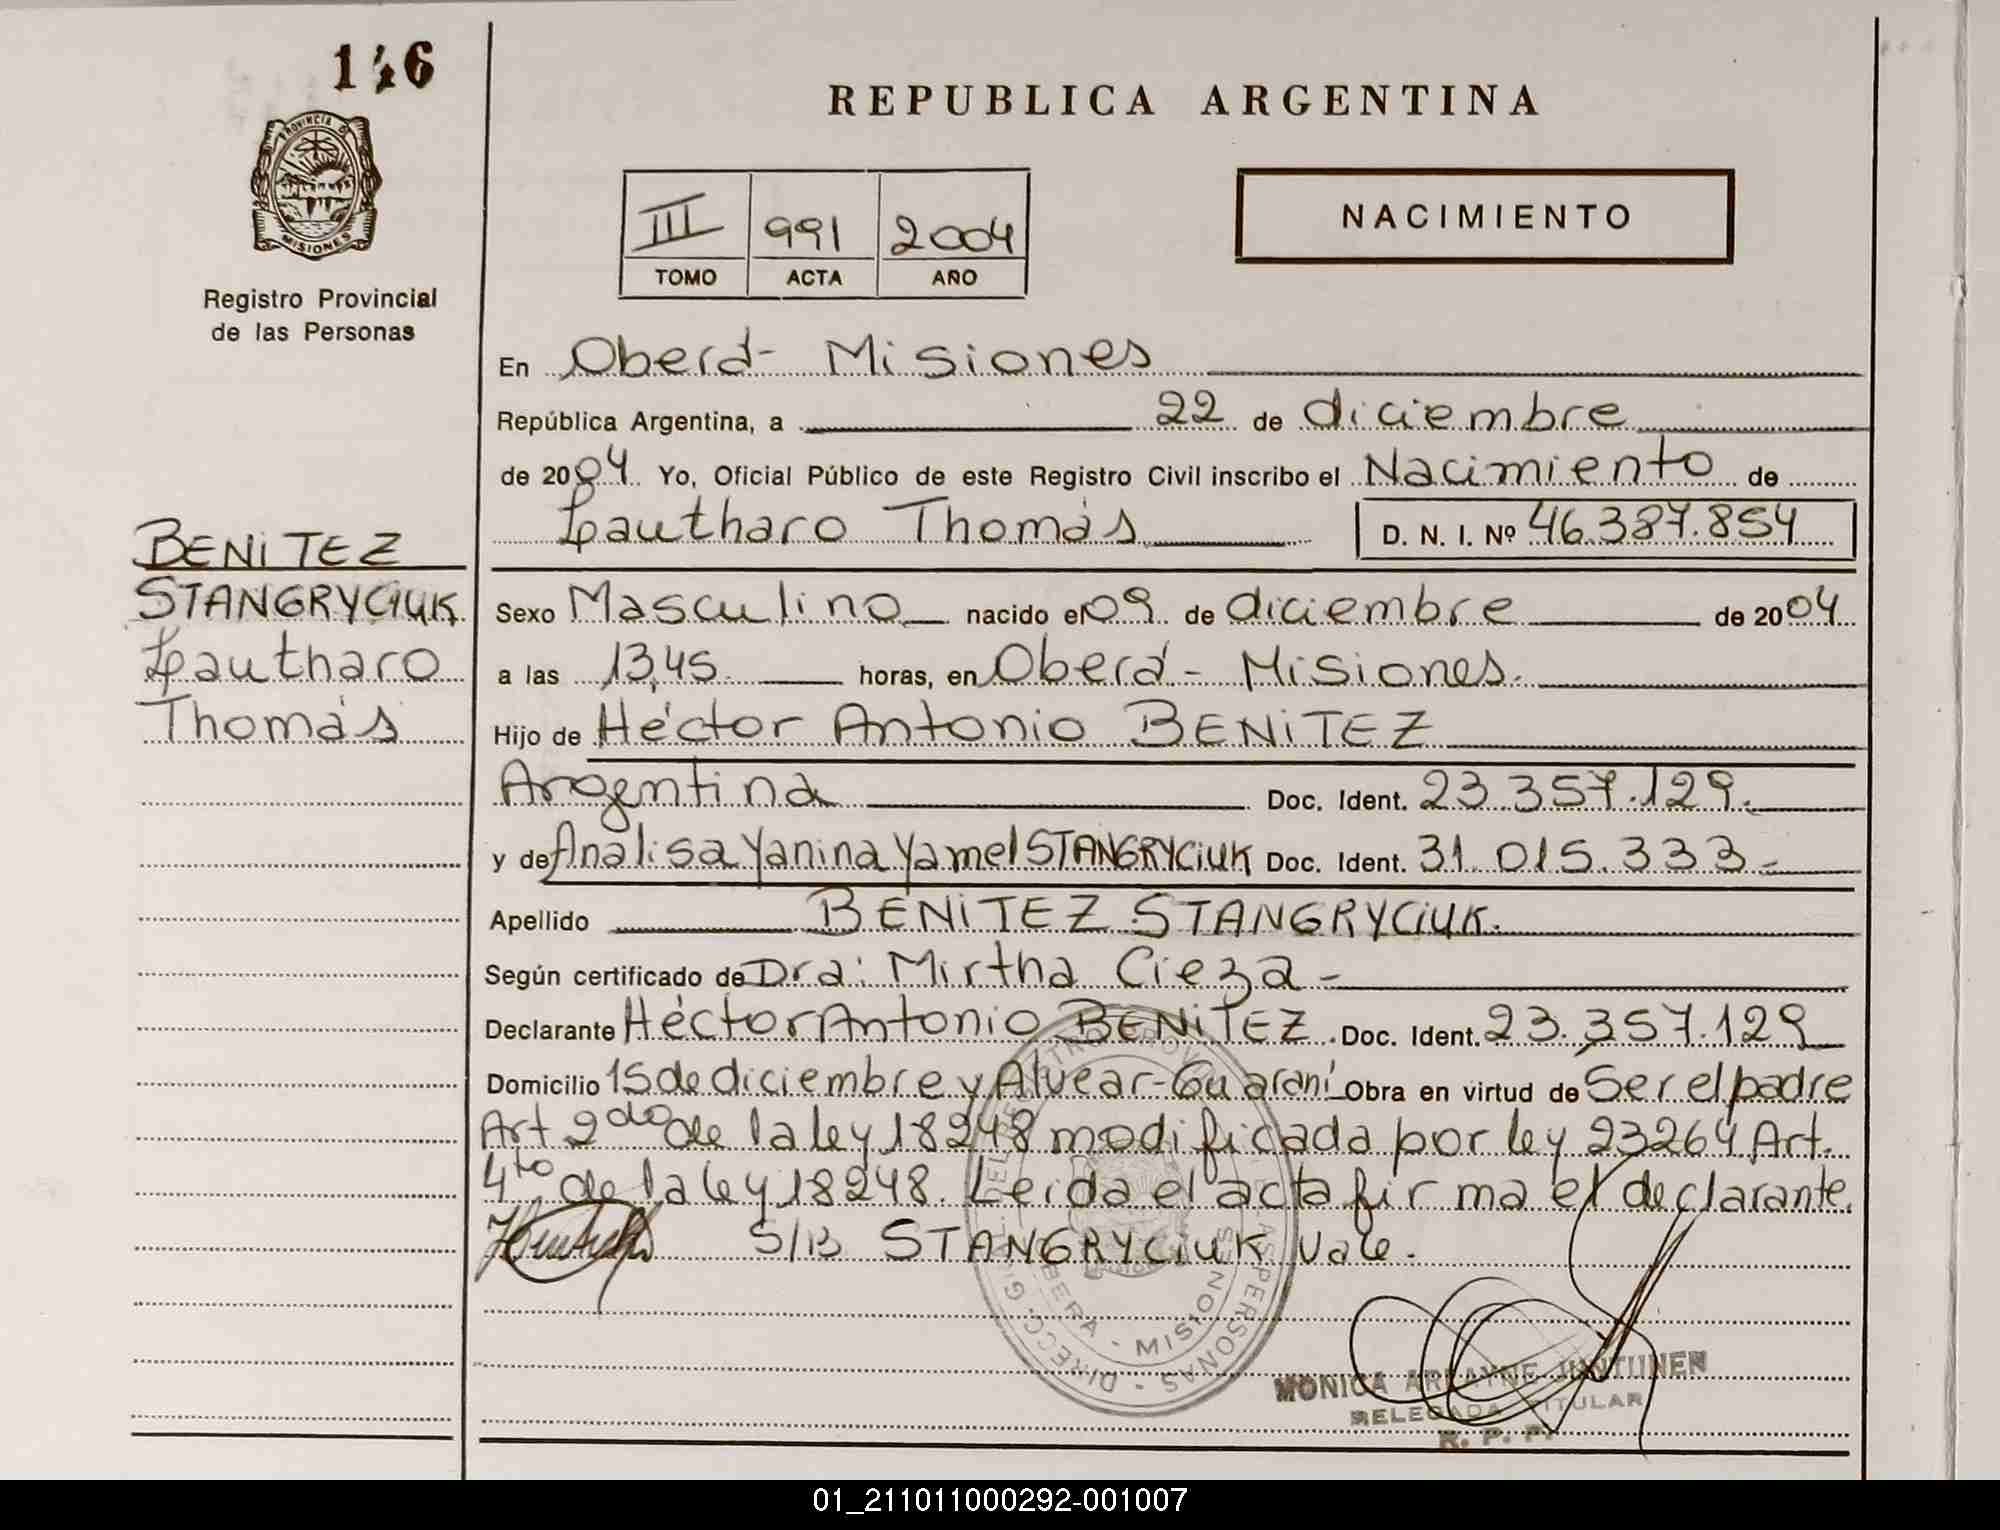 146
PROVINCIA D
MISIONES
Registro Provincial
de las Personas
REPUBLICA ARGENTINA
III 991 2004
TOMO ACTA AÑO
NACIMIENTO
En Oberá- Misiones
República Argentina, a 22 de diciembre
de 2004. Yo, Oficial Público de este Registro Civil inscribo el Nacimiento de
Lautharo Thomás D. N. I. Nº 46.387.854
BENITEZ
STANGRYCIUK
Lautharo
Thomás
Sexo Masculino nacido el 09 de diciembre de 2004
a las 13,45. horas, en Oberá - Misiones.
Hijo de Héctor Antonio BENITEZ
Argentina Doc. Ident. 23.357.129.
y de Analisa Yanina Yamel STANGRYCIUK Doc. Ident. 31.015.333-
Apellido BENITEZ STANGRYCIUK.
Según certificado de Dra: Mirtha Cieza -
Declarante Héctor Antonio BENITEZ. Doc. Ident. 23.357.129
Domicilio 15 de diciembre y Alvear-Guaraní Obra en virtud de Ser el padre
Art 2do de la ley 18248 modificada por ley 23264 Art.
4to de la ley 18248. Leida el acta firma el declarante.
S/B STANGRYCIUK Vale.
OBERA - MISIONES
PERSONAS - DIRECC. G
MONICA ARLAYNE JUNTUNEN
DELEGADA TITULAR
R. P. P.
01_211011000292-001007